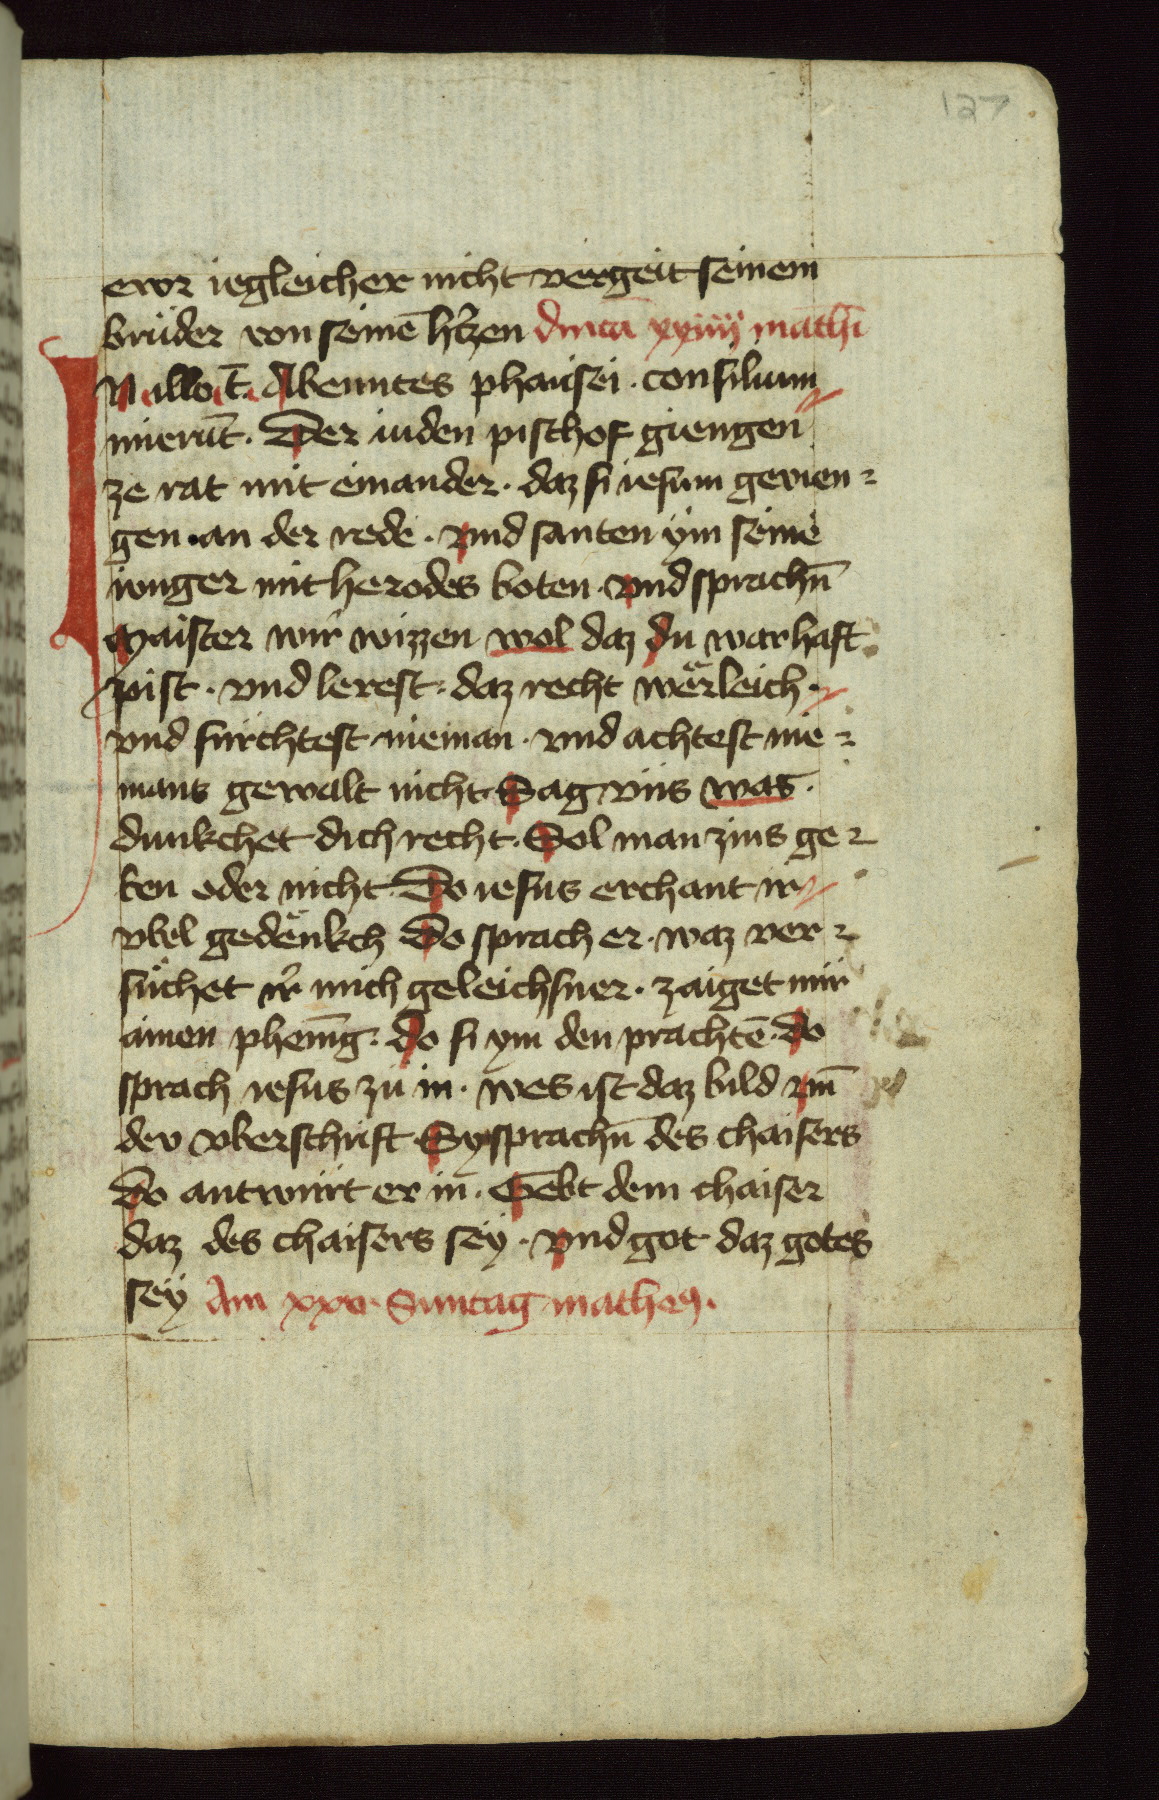 127
ewr iegleicher nicht vergeit seinem
brüder von seinē hʼczen dnıca xxiiij mathī
In illo t̄. Abeuntes pharisei. consilium
inierūt. Der iuden pischof giengen
ze rat mit einander. daz si iesum gevien⸗
gen. an der rede. vnd santen ÿm seine
iunger mit herodes boten. vnd sprachn̄
Maister wir wizzen wol daz du warhaft
pist. vnd lerest. daz recht wärleich.
vnd fürchtest nieman. vnd achtest nie⸗
mans gewalt nicht. Sag vns was.
dunkchet dich recht. Sol man zins ge⸗
ben oder nicht. Do iesus erchant ir
vbel gedänkch Do sprach er. waz ver⸗
süchet ir mich geleichsner. zaiget mir
ainen phenīg. do si ym den prachtē. do
sprach iesus zu in. wes ist daz bild vn̄
dev vberschrift. Sy sprachn̄ des chaisers
Do antwürt er in. Gebt dem chaiser
daz des chaisers sey. vnd got daz gotes
seÿ Am xxv. Suntag mathei.